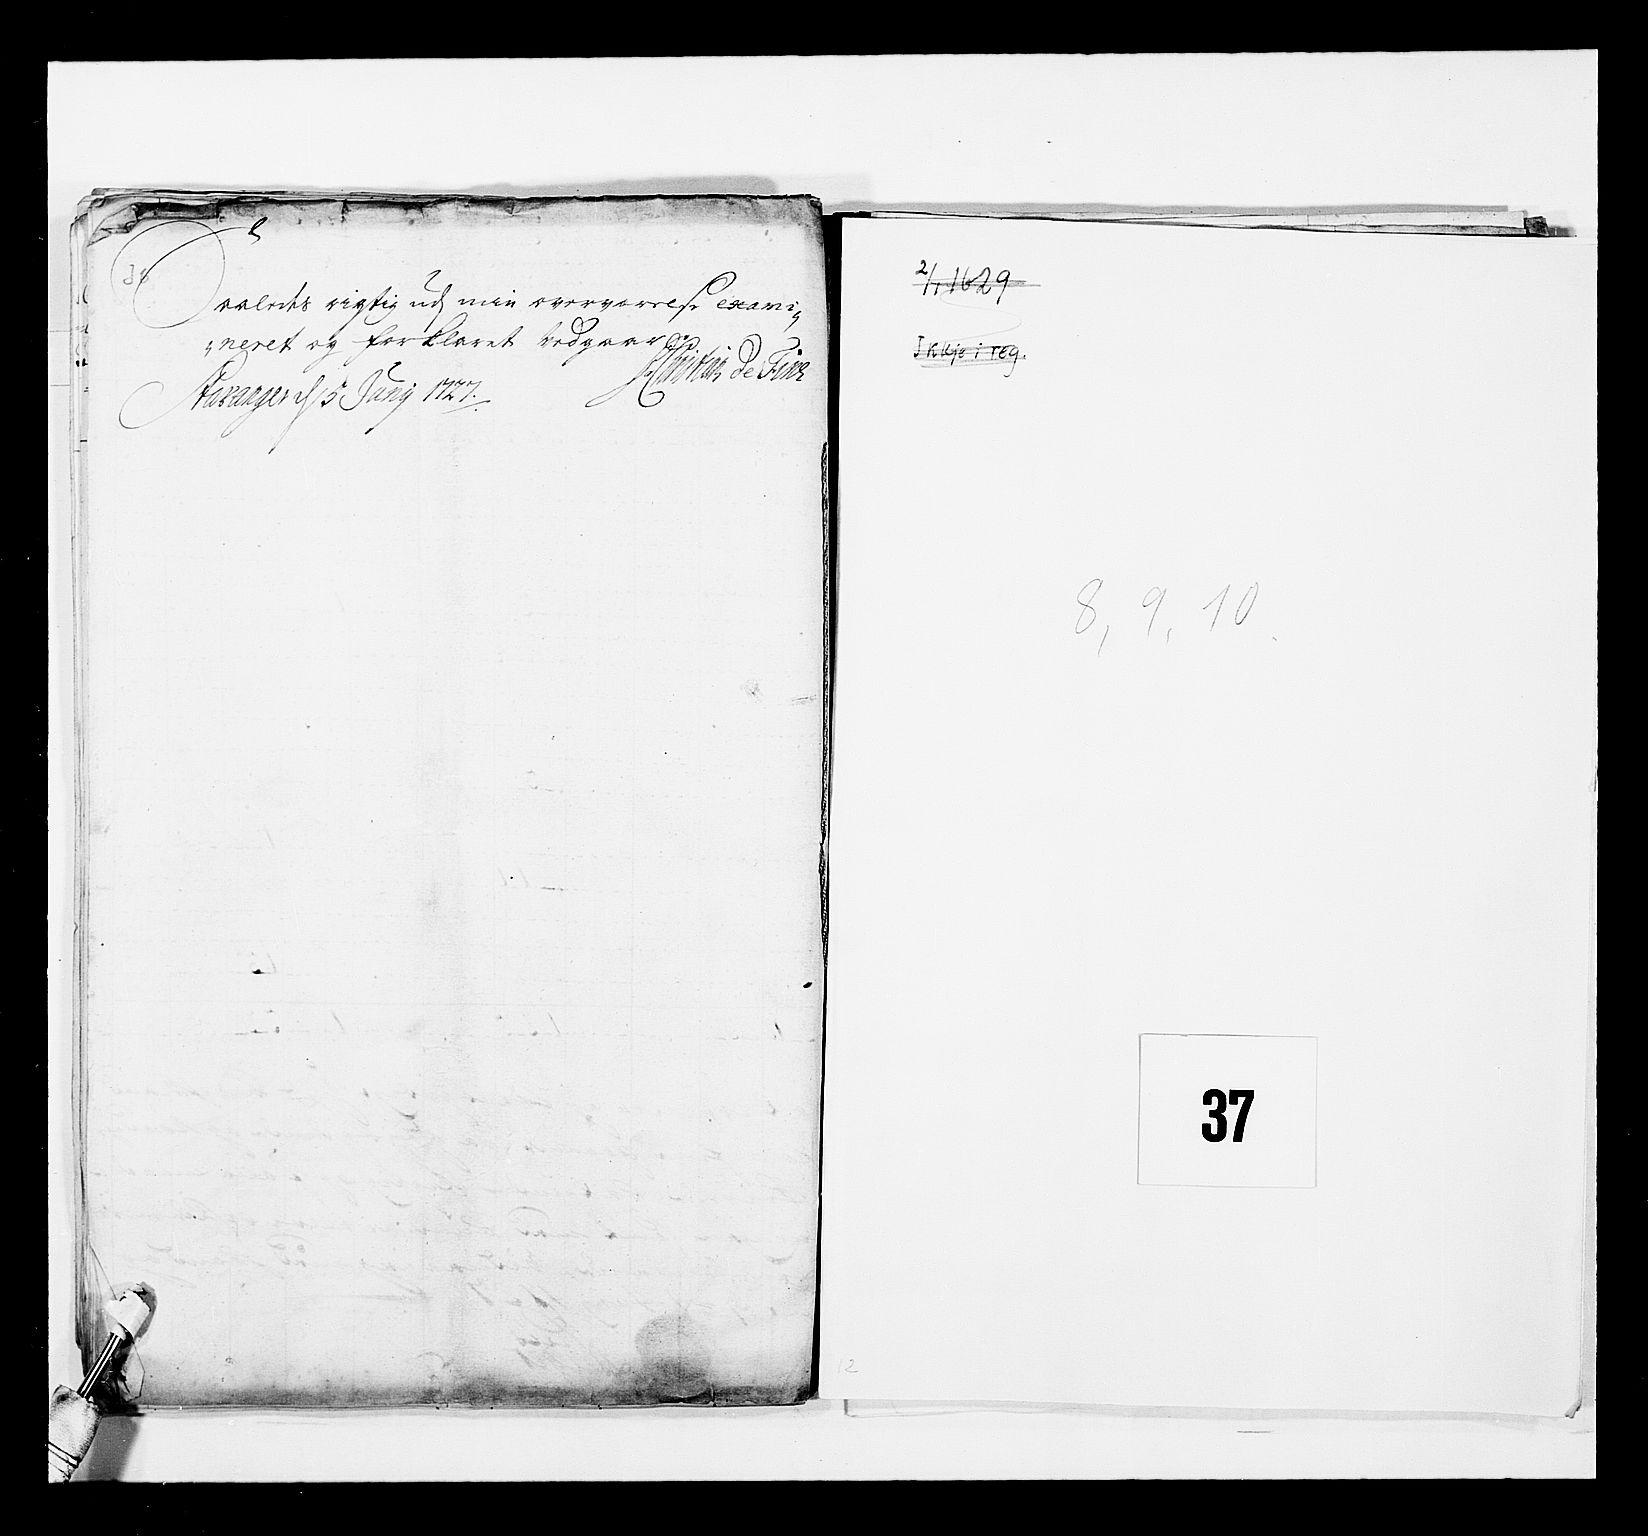 Saaledes rigtig udj min overværrelse exami„
„neret og forklaret vedgaar
Stavanger d 5 Junj 1727.
Christian de Fine
2/1 1629
Ikkje i reg.
8, 9, 10
37
12